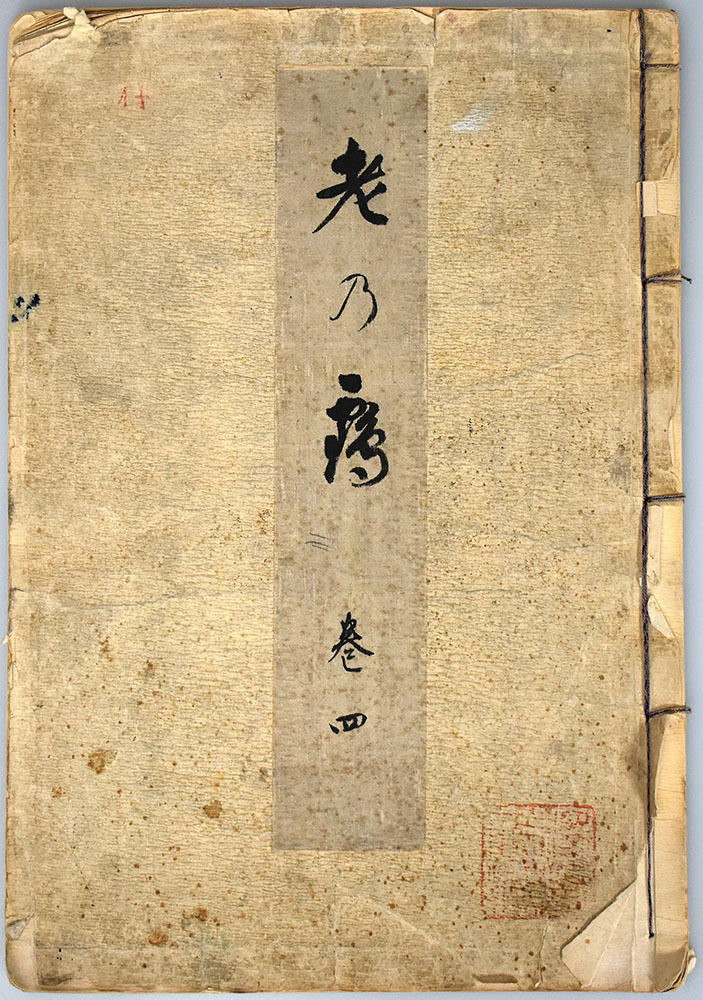 老乃鶴 巻四